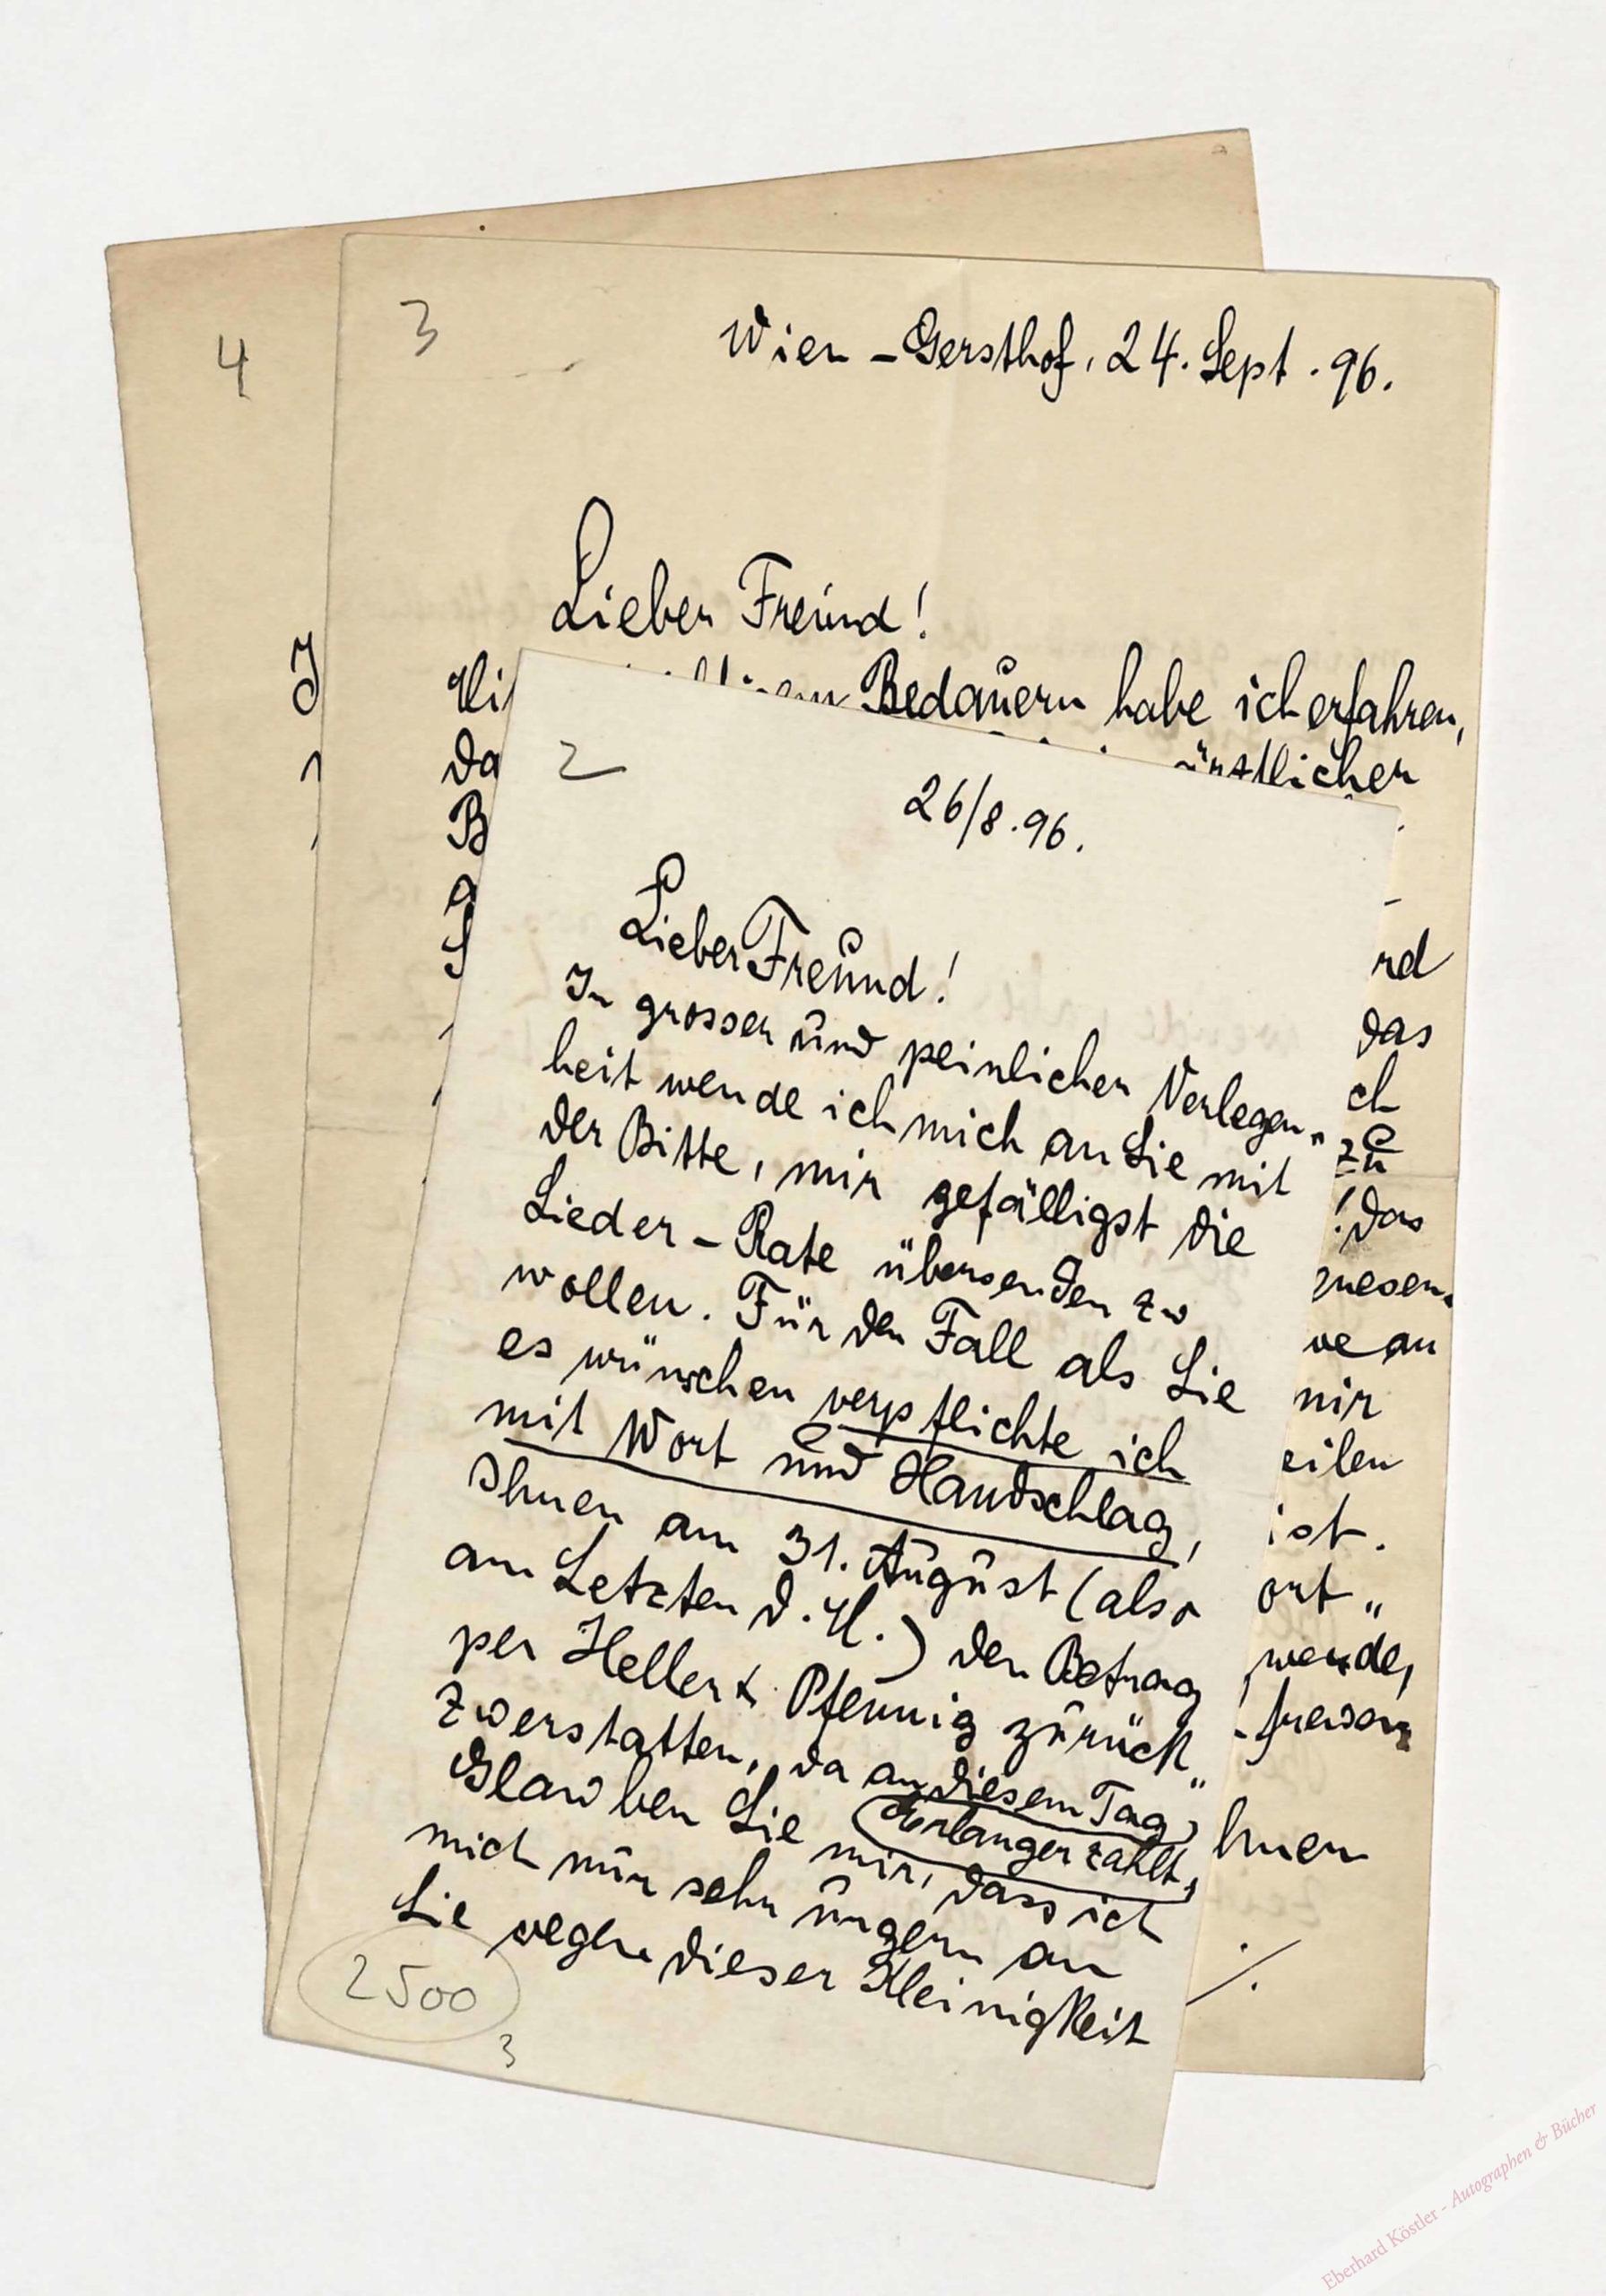 4
J
3
Wien-Gersthof, 24. Sept. 96.
Lieber Freund!
Bedauern habe ich erfahren,
ärztlicher
da
B
rd
das
ch
zu
! das
wesen.
ve an
mir
eilen
ist.
ort"
wende,
hnen
./.
2
26/8.96.
Lieber Freund!
In grosser und peinlicher Verlegen"
heit wende ich mich an Sie mit
der Bitte, mir gefälligst die
Lieder-Rate übersenden zu
wollen. Für den Fall als Sie
es wünschen verpflichte ich
mit Wort und Handschlag,
Ihnen am 31. August (also
am Letzten d. M.) den Betrag
per Heller & Pfennig zurück"
zuerstatten, da an diesem Tag
Erlanger zahlt,
Glauben Sie mir, dass ich
mich nur sehr ungern an
Sie wegen dieser Kleinigkeit
2500
3
Eberhard Köstler - Autographen & Bücher